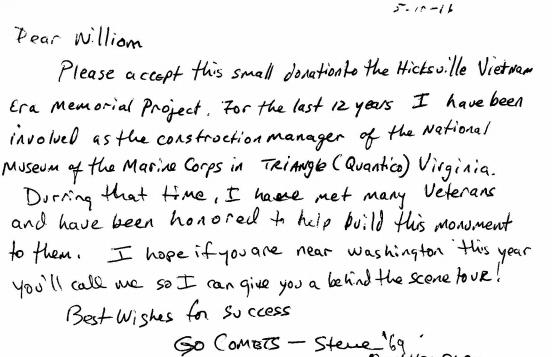 Dear William
Please accept this small donation to the Hicksville Vietnam
Era Memorial Project. For the last 12 years I have been
involved as the construction manager of the National
Museum of the Marine Corps in TRIANGLE (Quantico) Virginia.
Durring that time, I have met many Veterans
and have been honored to help build this monument
to them. I hope if you are near Washington this year
you'll call me so I can give you a behind the scene tour!
Best Wishes for Success
GO COMETS - Steve '69